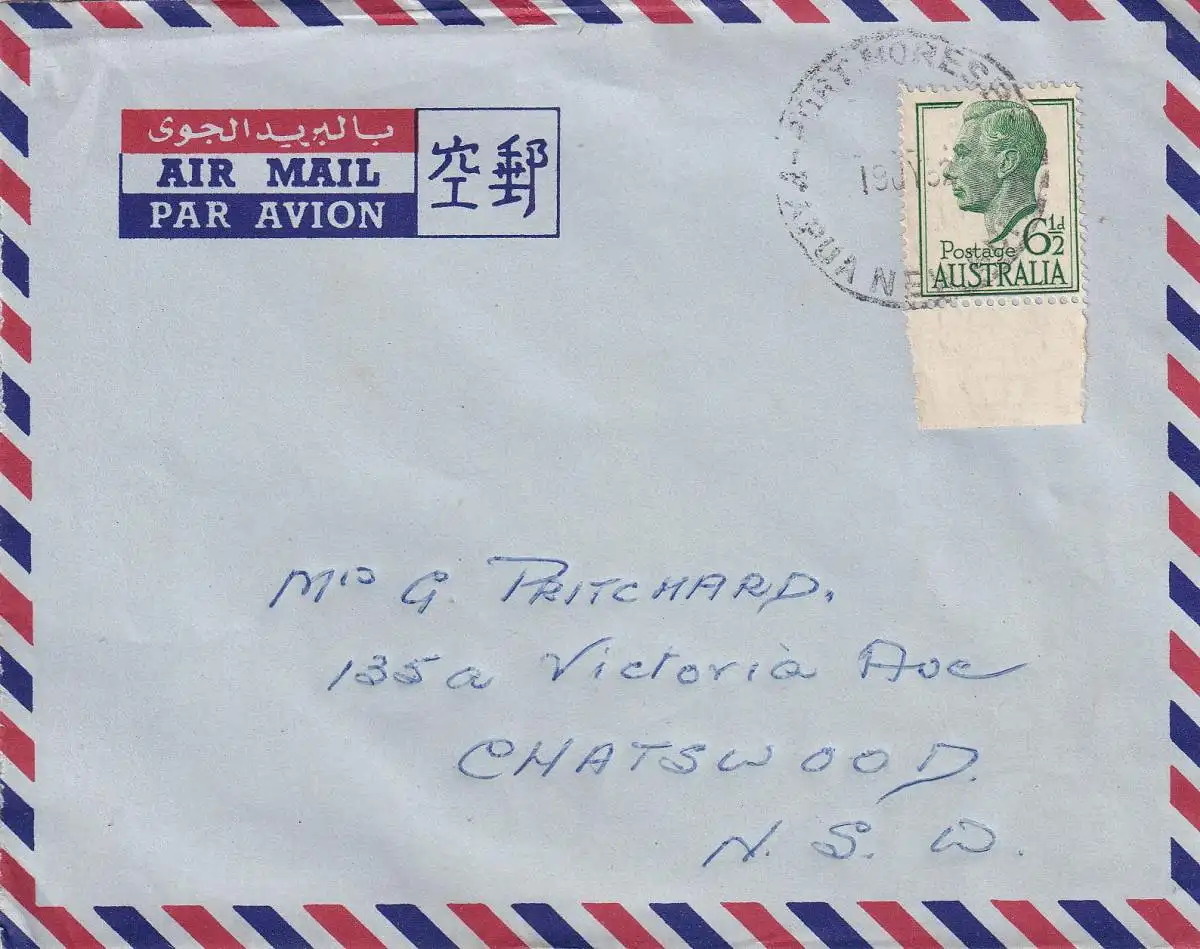 بالبريد الجوى
AIR MAIL
PAR AVION
空郵
PORT MORESB
19 JY 52
PAPUA NEW
Postage 6½d
AUSTRALIA
Mrs G. PRITCHARD.
135a Victoria Ave
CHATSWOOD.
N. S. W.